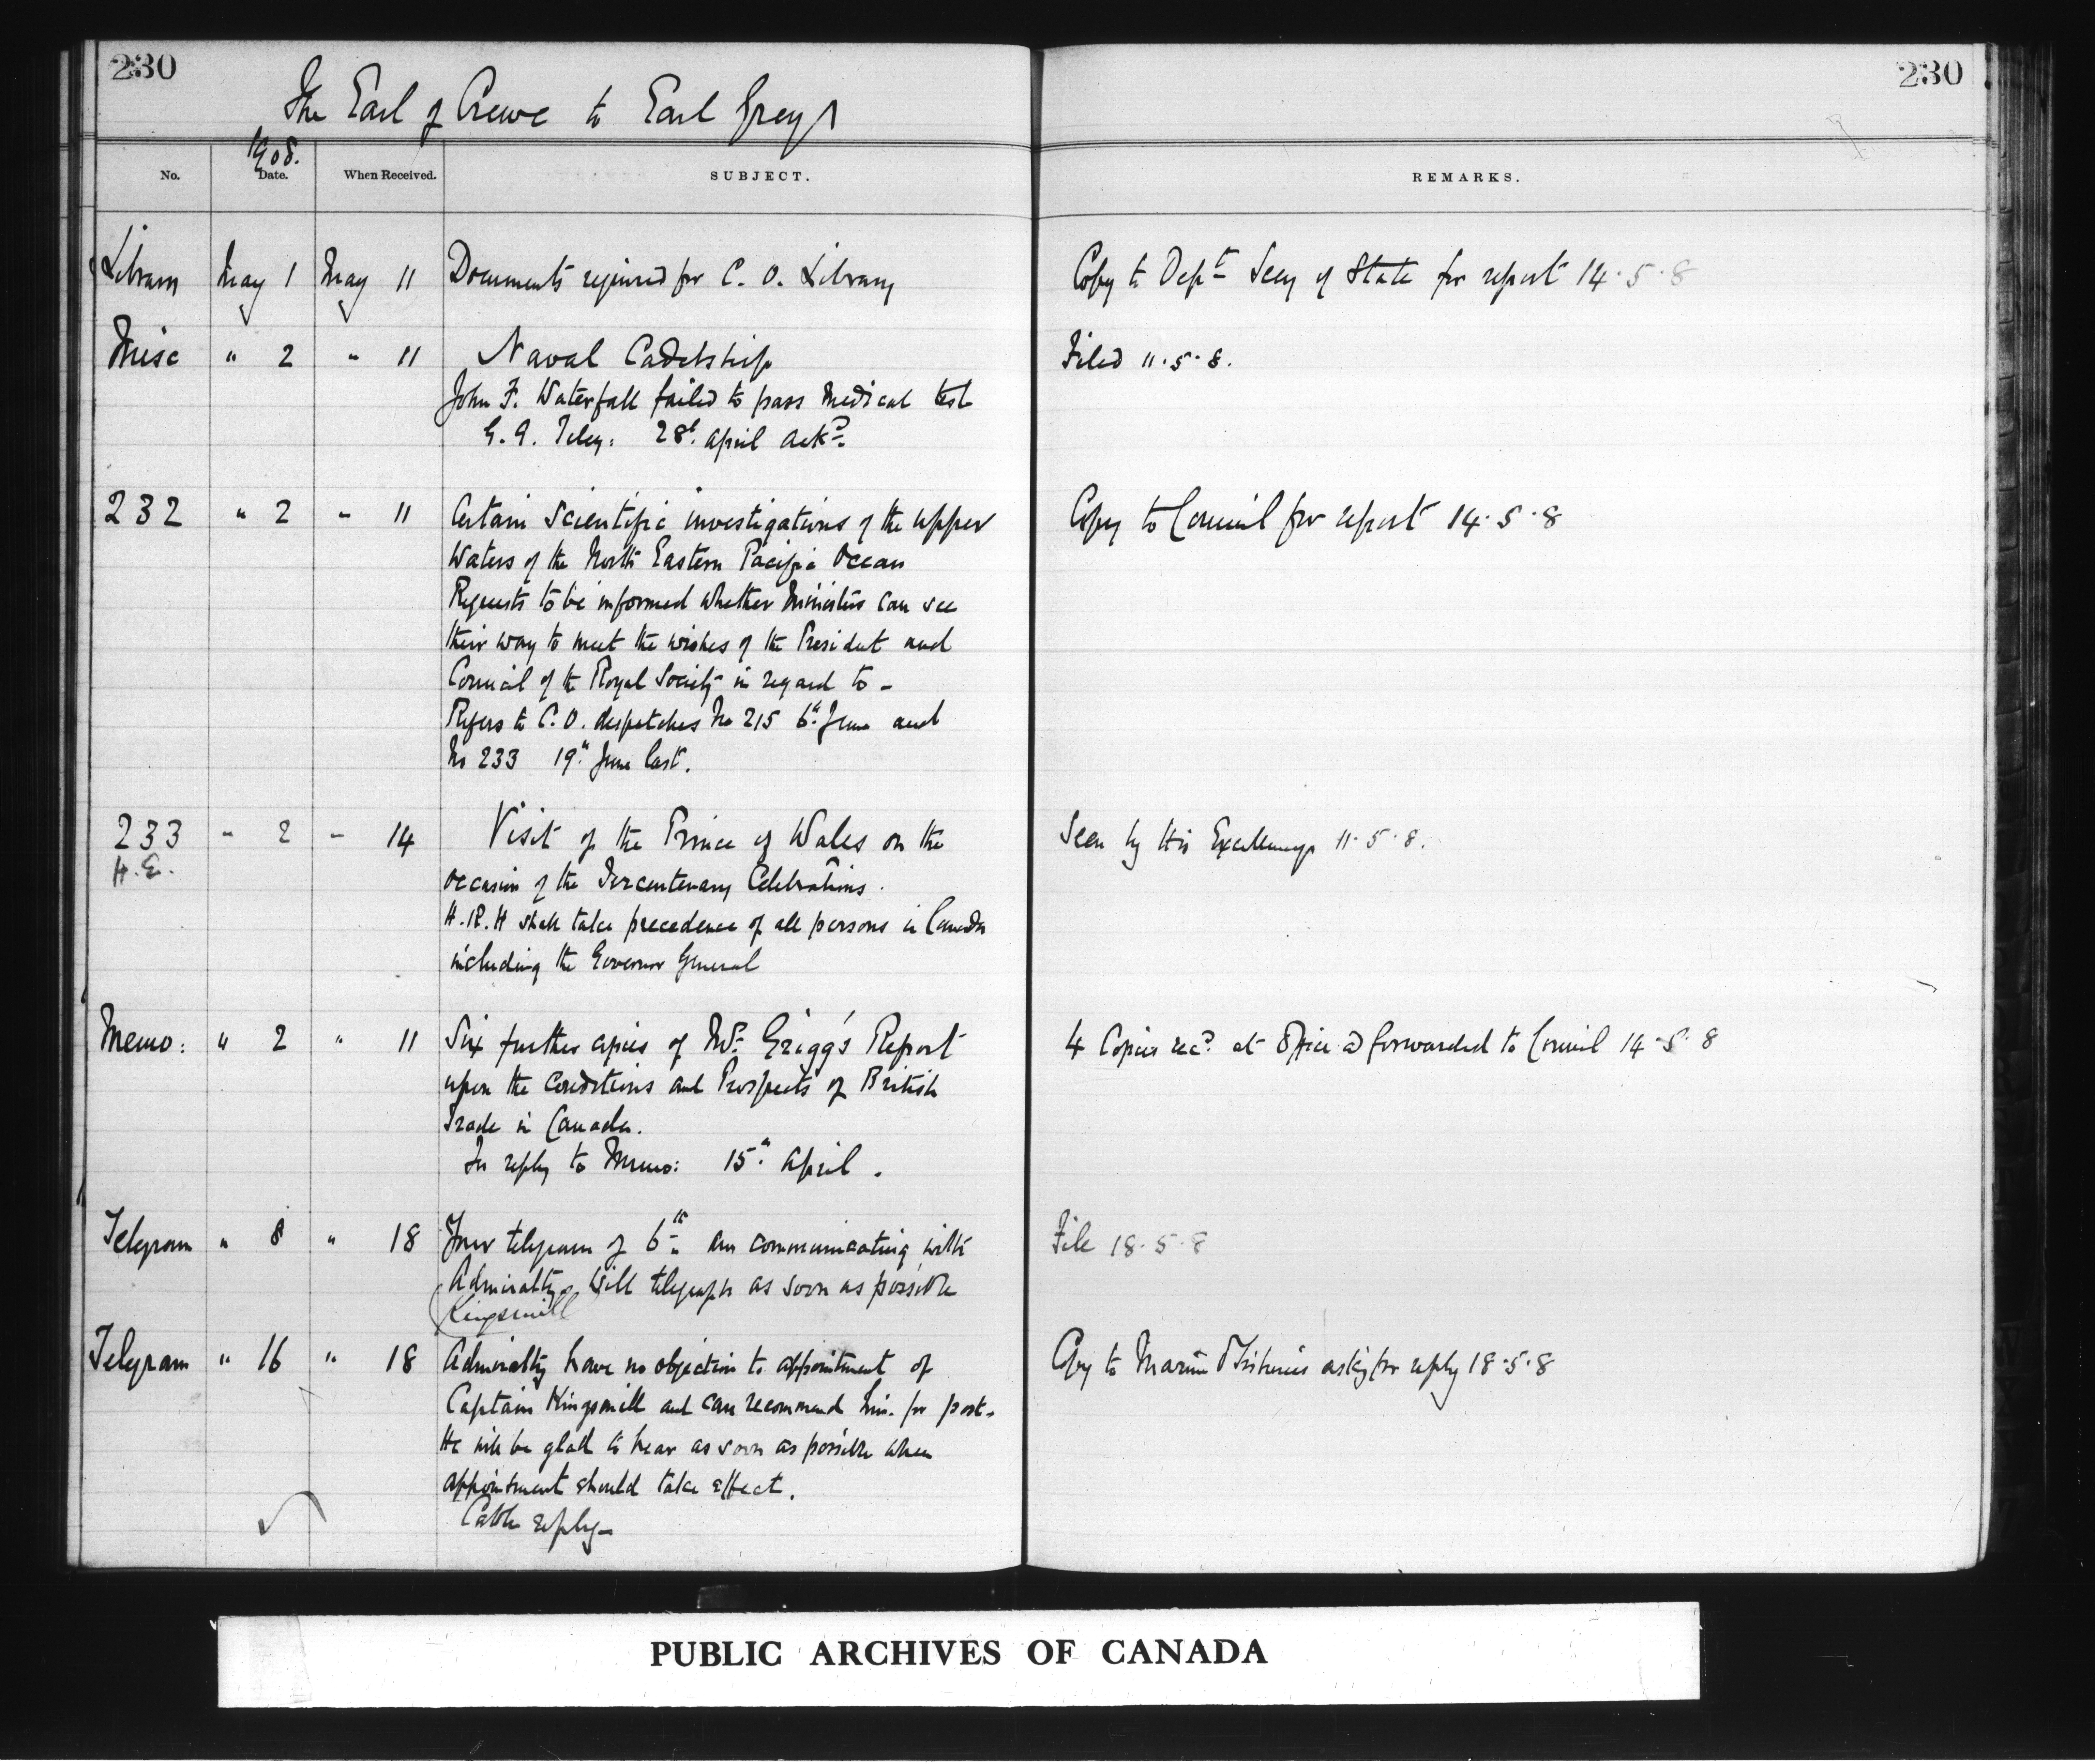 230
230
The Earl of Crewe to Earl Grey
1908.
No. Date. When Received. SUBJECT. REMARKS.
Library May 1 May 11 Documents required for C. O. Library Copy to Dept Secy of State for report 14.5.8
Misc " 2 " 11 Naval Cadetship Filed 11.5.8.
John F. Waterfall failed to pass Medical test
G. G. Teleg: 28th April ackd.
232 " 2 " 11 Certain Scientific investigations of the upper Copy to Council for report 14.5.8
Waters of the North Eastern Pacific Ocean
Requests to be informed whether Ministers can see
their way to meet the wishes of the President and
Council of the Royal Society in regard to -
Refers to C. O. despatches No 215 6th June and
No 233 19th June last.
233 " 2 " 14 Visit of the Prince of Wales on the Seen by His Excellency 11.5.8.
H.E. occasion of the Tercentenary Celebrations.
H.R.H shall take precedence of all persons in Canada
including the Governor General
Memo: " 2 " 11 Six further copies of Mr. Grigg's Report 4 Copies recd. at Office & forwarded to Council 14.5.8
upon the Conditions and Prospects of British
Trade in Canada.
In reply to Memo: 15th April.
Telegram " 8 " 18 Your telegram of 6th am communicating with File 18.5.8
Admiralty. Will telegraph as soon as possible
(Kingsmill
Telegram " 16 " 18 Admiralty have no objection to appointment of Copy to Marine & Fisheries asking for reply 18.5.8
Captain Kingsmill and can recommend him for post.
He will be glad to hear as soon as possible when
appointment should take effect.
Cable reply-
PUBLIC ARCHIVES OF CANADA